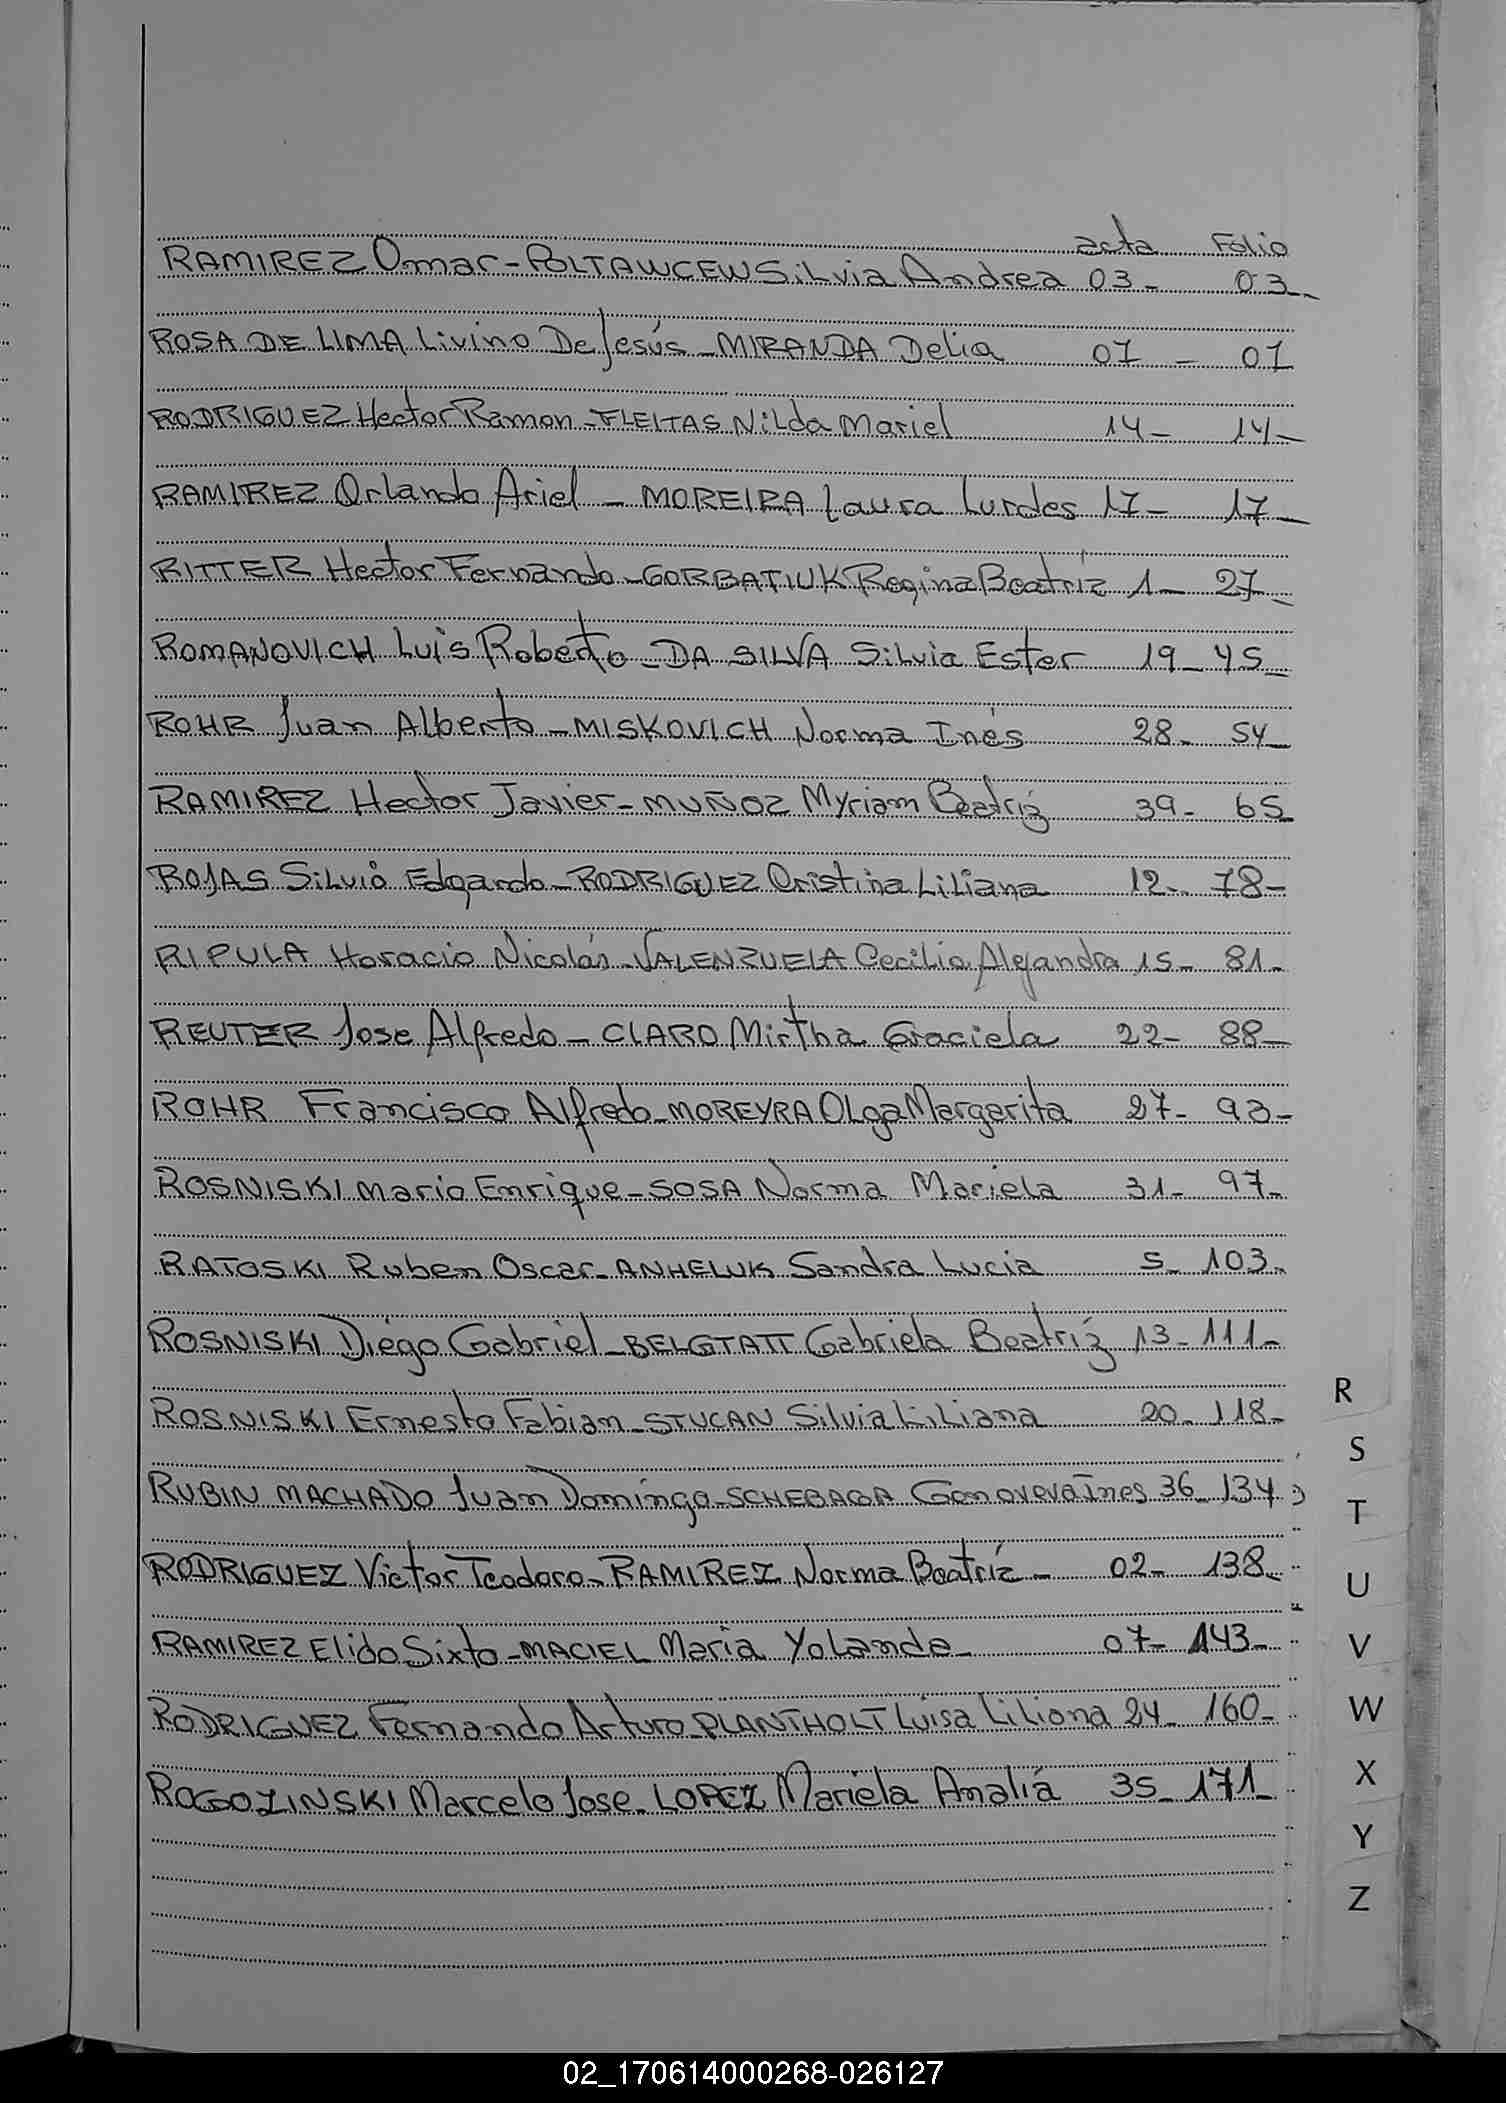 acta Folio
RAMIREZ Omar - POLTAWCEW Silvia Andrea 03 - 03 -
ROSA DE LIMA Livino De Jesús - MIRANDA Delia 07 - 07
RODRIGUEZ Hector Ramon - FLEITAS Nilda Mariel 14 - 14 -
RAMIREZ Orlando Ariel - MOREIRA Laura Lurdes 17 - 17 -
RITTER Hector Fernando - GORBATIUK Regina Beatriz 1 - 27 -
ROMANOVICH Luis Roberto - DA SILVA Silvia Ester 19 - 45 -
ROHR Juan Alberto - MISKOVICH Norma Inés 28 - 54 -
RAMIREZ Hector Javier - MUÑOZ Myriam Beatriz 39 - 65
ROJAS Silvio Edgardo - RODRIGUEZ Cristina Liliana 12 - 78 -
RIPULA Horacio Nicolás - VALENZUELA Cecilia Alejandra 15 - 81 -
REUTER Jose Alfredo - CLARO Mirtha Graciela 22 - 88 -
ROHR Francisco Alfredo - MOREYRA Olga Margarita 27 - 93 -
ROSNISKI Mario Enrique - SOSA Norma Mariela 31 - 97 -
RATOSKI Ruben Oscar - ANHELUK Sandra Lucia 5 - 103 -
ROSNISKI Diégo Gabriel - BELGTATT Gabriela Beatriz 13 - 111 -
R
ROSNISKI Ernesto Fabian - STUCAN Silvia Liliana 20 - 118 -
S
RUBIN MACHADO Juan Domingo - SCHEBAGA Genoveva Ines 36 - 134
T
RODRIGUEZ Victor Teodoro - RAMIREZ Norma Beatriz - 02 - 138 -
U
RAMIREZ Elido Sixto - MACIEL Maria Yolanda - 07 - 143 -
V
RODRIGUEZ Fernando Arturo - PLANTHOLT Luisa Liliana 24 - 160 -
W
ROGOZINSKI Marcelo Jose - LOPEZ Mariela Analiá 35 - 171 -
X
Y
Z
02_170614000268-026127